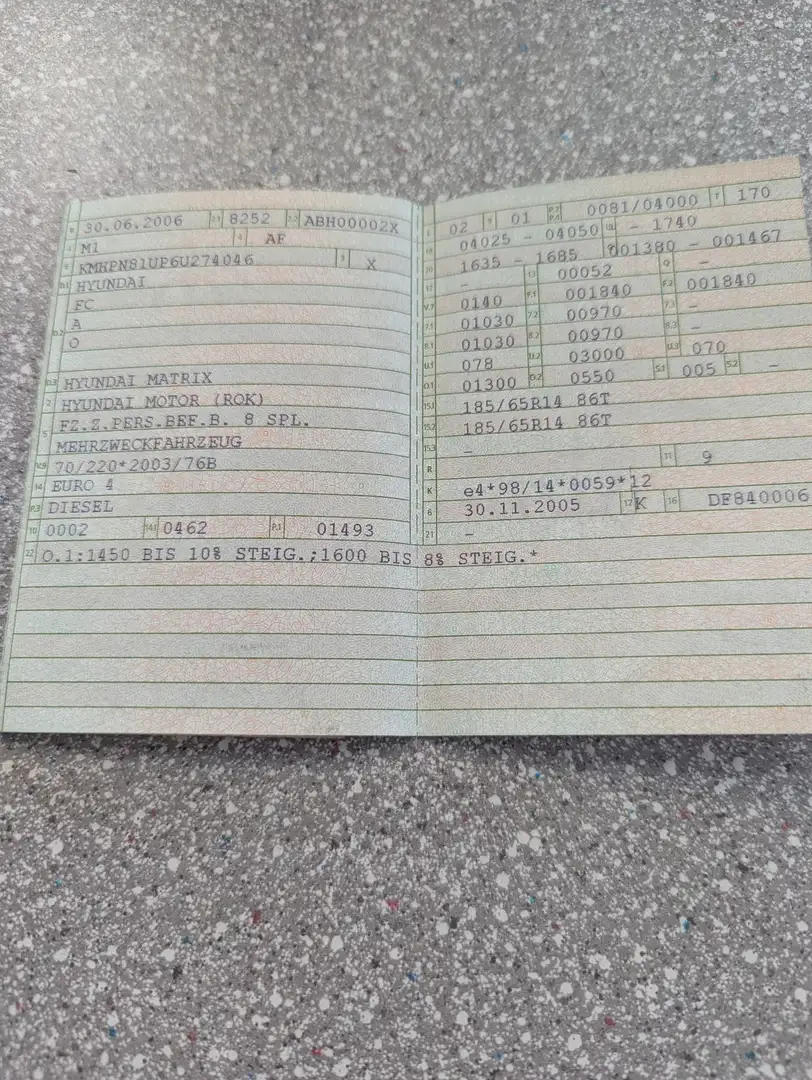 B 30.06.2006 2.1 8252 2.2 ABH00002X
J M1 4 AF
E KMHPN81UP6U274046 3 X
D.1 HYUNDAI
FC
D.2 A
0
D.3 HYUNDAI MATRIX
2 HYUNDAI MOTOR (ROK)
5 FZ.Z.PERS.BEF.B. 8 SPL.
MEHRZWECKFAHRZEUG
V.9 70/220*2003/76B
14 EURO 4
P.3 DIESEL
10 0002 14.1 0462 P.1 01493
22 O.1:1450 BIS 10% STEIG.;1600 BIS 8% STEIG.*
L 02 9 01 P.2 P.4 0081/04000 T 170
18 04025 - 04050 19 - 1740
20 1635 - 1685 G 001380 - 001467
12 - 13 00052 Q -
V.7 0140 F.1 001840 F.2 001840
7.1 01030 7.2 00970 7.3 -
8.1 01030 8.2 00970 8.3 -
U.1 078 U.2 03000 U.3 070
O.1 01300 O.2 0550 S.1 005 S.2 -
15.1 185/65R14 86T
15.2 185/65R14 86T
15.3 -
R 11 9
K e4*98/14*0059*12
6 30.11.2005 17 K 16 DF840006
21 -